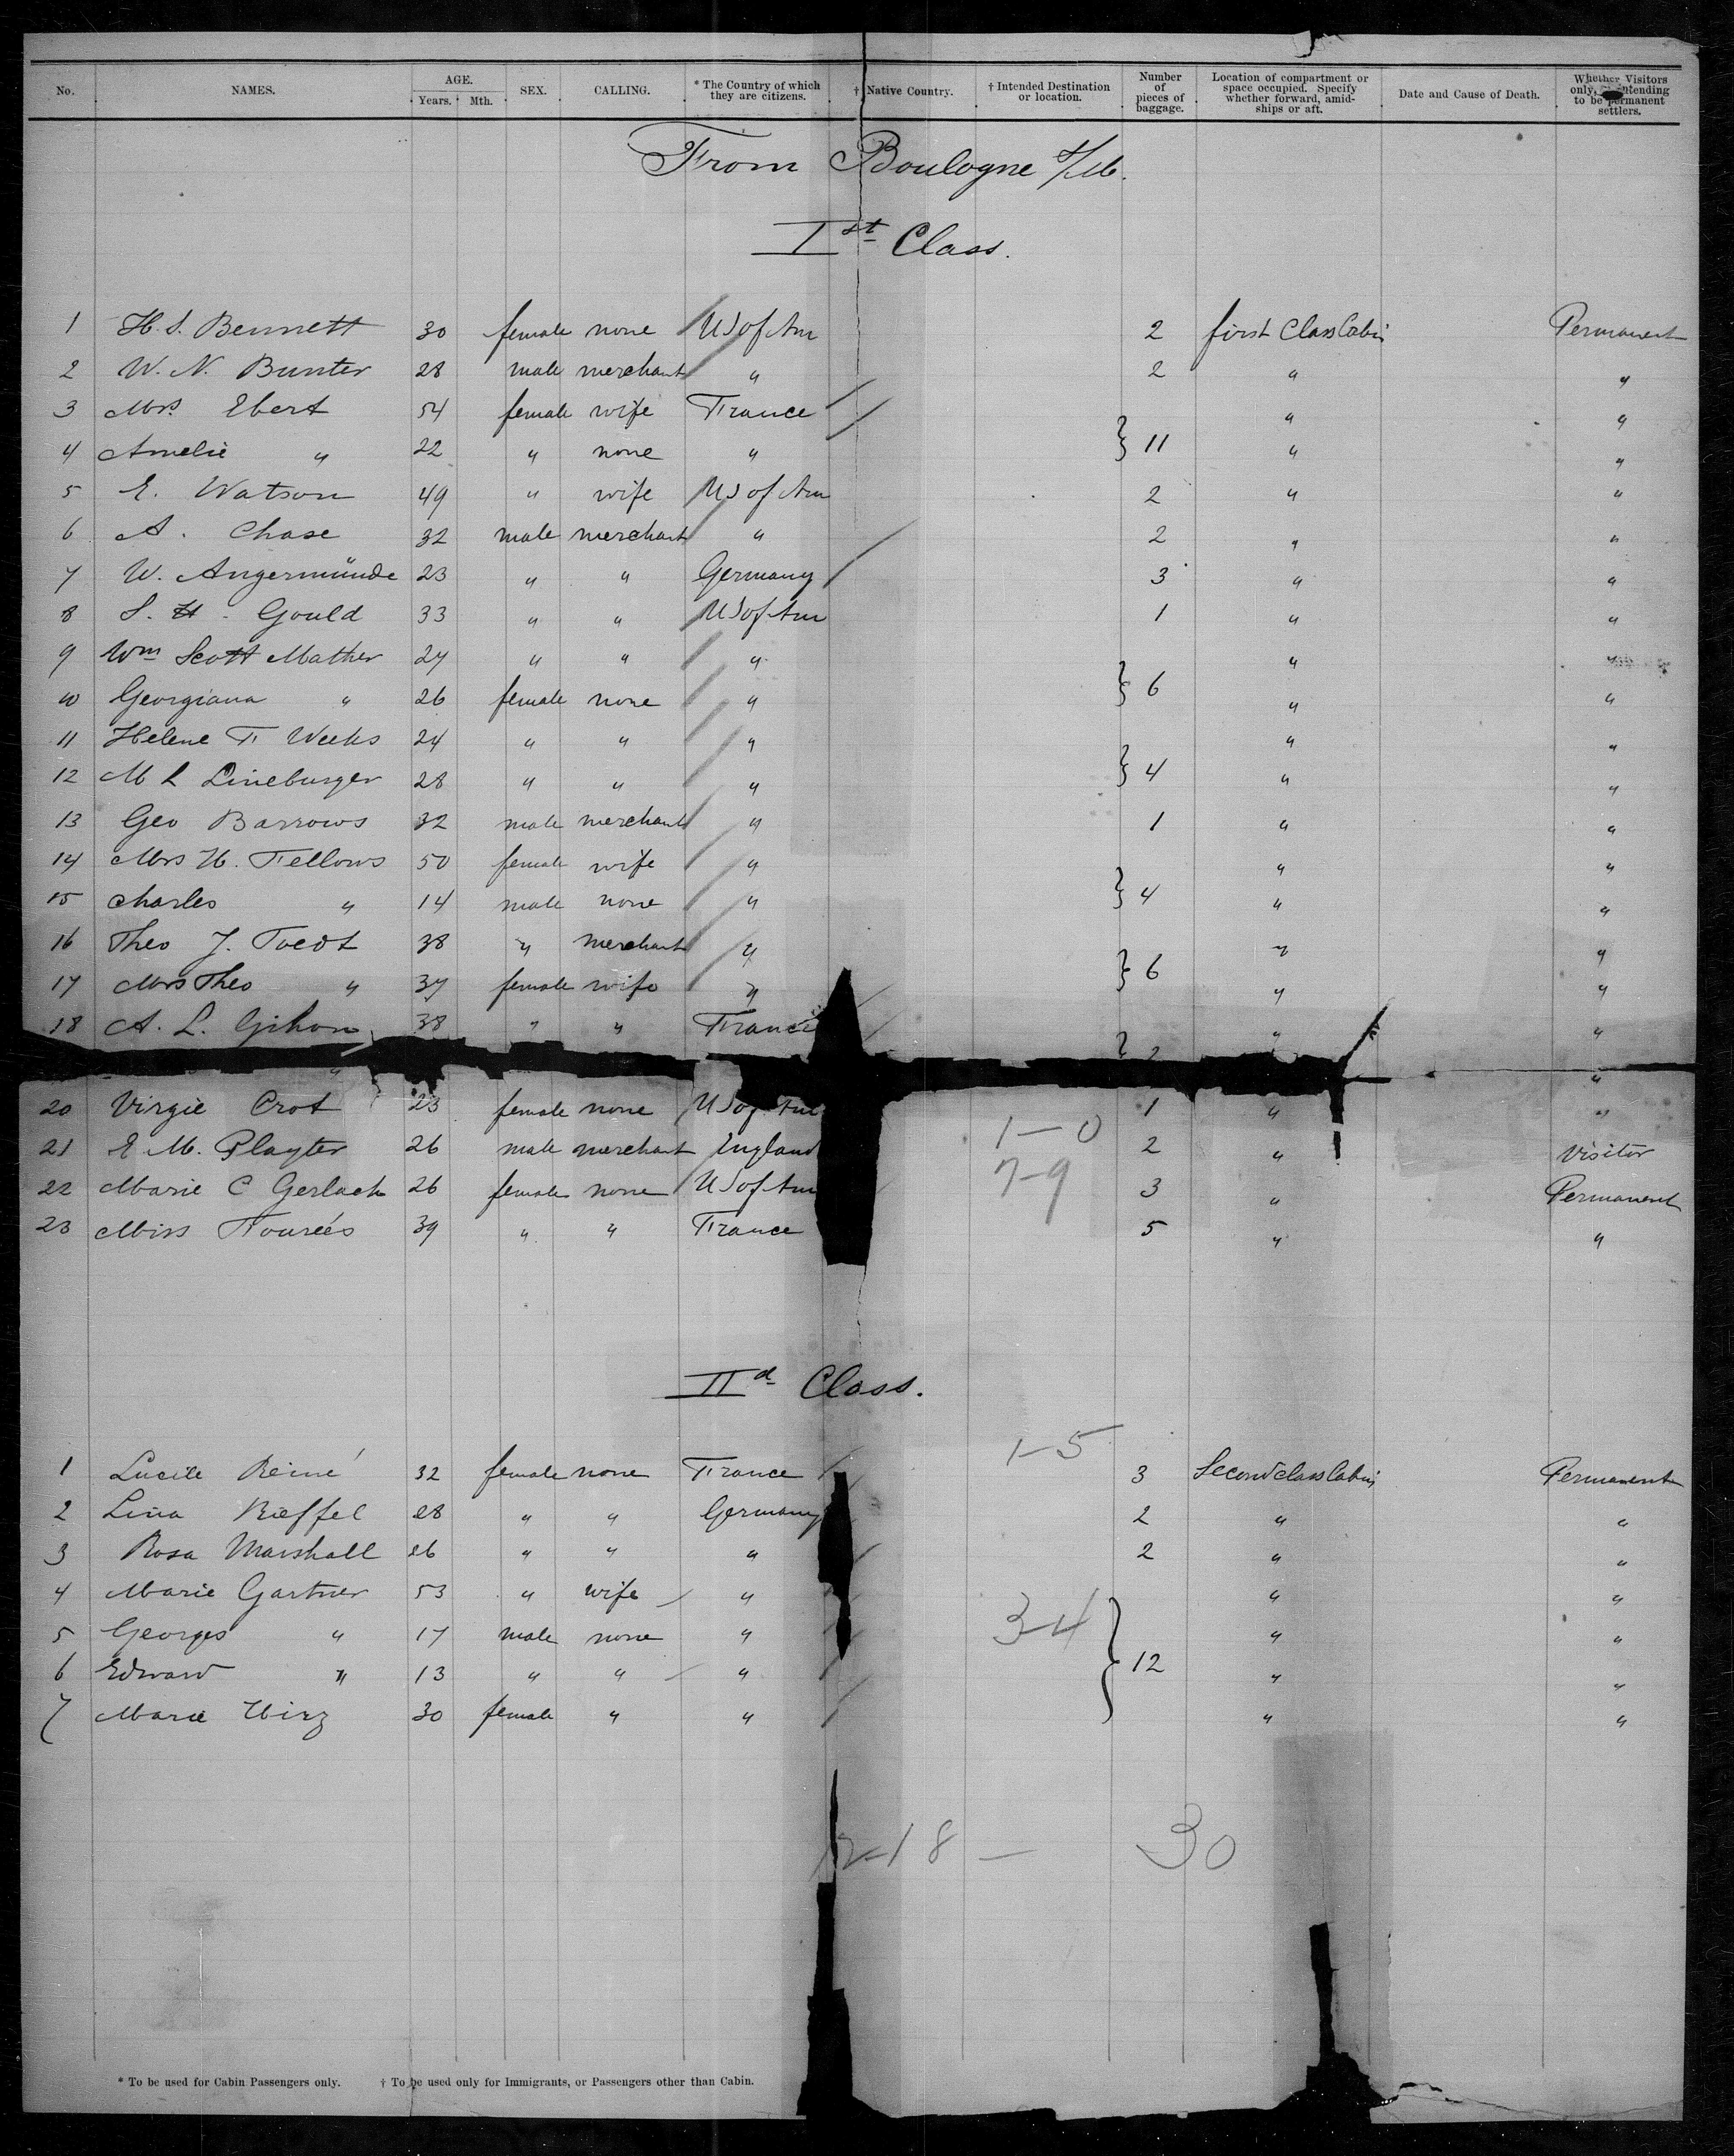 No. NAMES. AGE. Years. Mth. SEX. CALLING. * The Country of which they are citizens. † Native Country. † Intended Destination or location. Number of pieces of baggage. Location of compartment or space occupied. Specify whether forward, amidships or aft. Date and Cause of Death. Whether Visitors only, intending to be permanent settlers.
From Boulogne s/M.
Ist Class.
1 H. S. Bennett 30 female none U S of Am 2 first Class Cabin Permanent
2 W. N. Bunter 28 male merchant " 2 " "
3 Mrs. Ebert 54 female wife France " "
4 Amelie " 22 " none " } 11 " "
5 E. Watson 49 " wife U S of Am 2 " "
6 A. Chase 32 male merchant " 2 " "
7 W. Angermünde 23 " " Germany 3 " "
8 S. H. Gould 33 " " U S of Am 1 " "
9 Wm Scott Mather 27 " " " " "
10 Georgiana " 26 female none " } 6 " "
11 Helene F Weeks 24 " " " " "
12 M L Lineburger 28 " " " } 4 " "
13 Geo Barrows 32 male merchant " 1 " "
14 Mrs H. Fellows 50 female wife " " "
15 Charles " 14 male none " } 4 " "
16 Theo J. Toedt 38 " merchant " " "
17 Mrs Theo " 37 female wife " } 6 " "
18 A. L. Gihon 38 " " France " "
" } 2 "
20 Virgie Crot 23 female none U S of Am 1 " "
1-0
21 E. M. Playter 26 male merchant England 2 " Visitor
7-9
22 Marie C Gerlach 26 female none U S of Am 3 " Permanent
23 Miss Fourées 39 " " France 5 " "
IId Class.
1-5
1 Lucile Reiné 32 female none France 3 Second class Cabin Permanent
2 Lina Rieffel 28 " " Germany 2 " "
3 Rosa Marshall 26 " " " 2 " "
4 Marie Gartner 53 " wife " " "
5 Georges " 17 male none " 34 " "
6 Edward " 13 " " " } 12 " "
7 Marie Hirz 30 female " " " "
2-18 — 30
* To be used for Cabin Passengers only. † To be used only for Immigrants, or Passengers other than Cabin.